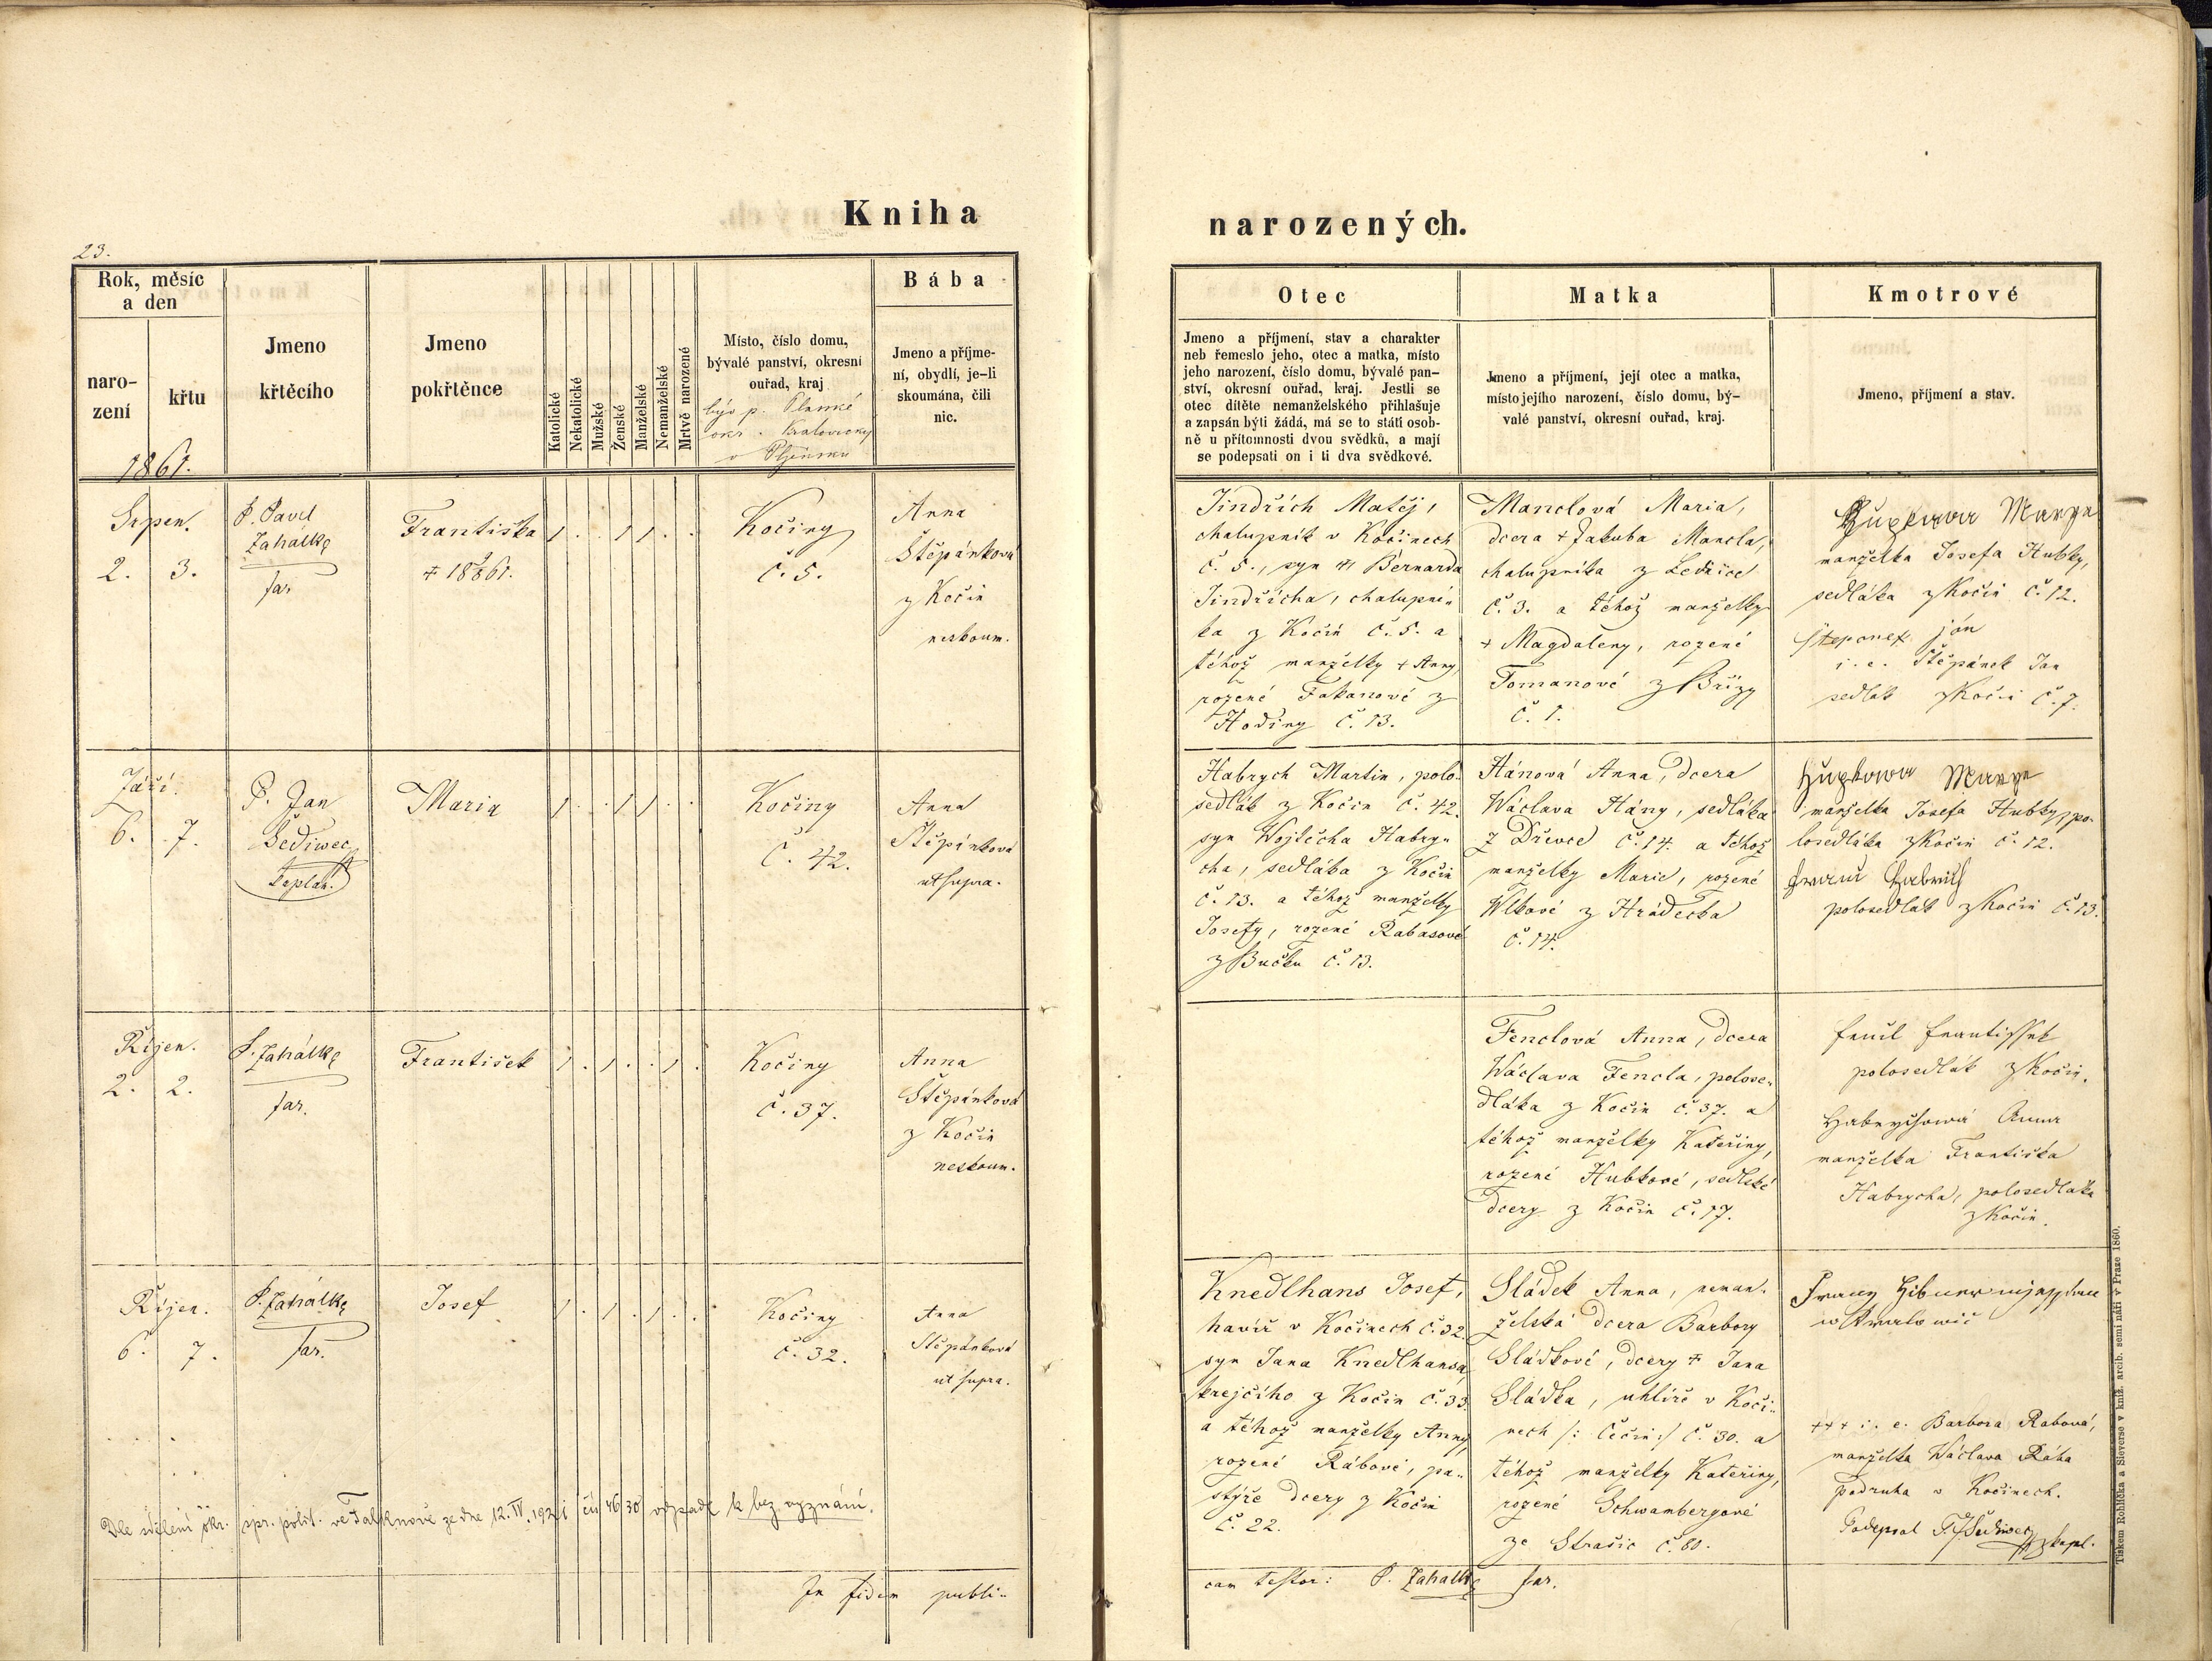 Kniha
narozených.
23.
Rok, měsíc
a den
naro-
zení
křtu
1861.
Jmeno
křtěcího
Jmeno
pokřtěnce
Katolické
Nekatolické
Mužské
Ženské
Manželské
Nemanželské
Mrtvě narozené
Místo, číslo domu,
bývalé panství, okresní
ouřad, kraj
býv. p. Planské
okr. Kralovický
v Plzeňsku
Bába
Jmeno a příjme-
ní, obydlí, je-li
skoumána, čili
nic.
Otec
Jmeno a příjmení, stav a charakter
neb řemeslo jeho, otec a matka, místo
jeho narození, číslo domu, bývalé pan-
ství, okresní ouřad, kraj. Jestli se
otec dítěte nemanželského přihlašuje
a zapsán býti žádá, má se to státi osob-
ně u přítomnosti dvou svědků, a mají
se podepsati on i ti dva svědkové.
Matka
Jmeno a příjmení, její otec a matka,
místo jejího narození, číslo domu, bý-
valé panství, okresní ouřad, kraj.
Kmotrové
Jmeno, příjmení a stav.
Srpen.
2. 3.
P. Pavel
Zahálka
far.
Františka
1 . . 1 1 . .
Kočiny
č. 5.
Anna
Štěpánková
z Kočin
neskoum.
Jindřich Matěj,
chalupník v Kočinech
č. 5., syn Bernarda
Jindřicha, chalupní-
ka z Kočin č. 5. a
téhož manželky + Anny,
rozené Fakanové z
Hodiny č. 13.
Manclová Maria,
dcera + Jakuba Mancla,
chalupníka z Lednice
č. 3. a téhož manželky
+ Magdaleny, rozené
Tomanové z Břízy
č. 1.
manželka Josefa Hubky,
sedláka z Kočin č. 12.
Štepanek jan
i. e. Štěpánek Jan
sedlák z Kočin č. 7.
Září.
6. 7.
P. Jan
Šediwec
kaplan.
Maria
1 . . 1 1 . .
Kočiny
č. 42.
Anna
Štěpánková
ut supra.
Habrych Martin, polo-
sedlák z Kočin č. 42.
syn Wojtěcha Habry-
cha, sedláka z Kočin
č. 13. a téhož manželky
Josefy, rozené Rabasové
z Bučku č. 13.
Hánová Anna, dcera
Wáclava Hány, sedláka
z Dřevce č. 14. a téhož
manželky Marie, rozené
Wlkové z Hrádecka
č. 14.
manželka Josefa Hubky, po-
losedláka z Kočin č. 12.
Franc Habrich
polosedlák z Kočin č. 13.
Říjen.
2. 2.
P. Zahálka
far.
František
1 . 1 . . 1 .
Kočiny
č. 37.
Anna
Štěpánková
z Kočin
neskoum.
Fenclová Anna, dcera
Wáclava Fencla, polose-
dláka z Kočin č. 37. a
téhož manželky Kateřiny,
rozené Hubkové, sedlské
dcery z Kočin č. 17.
fencl frantissek
polosedlák z Kočin.
Habrychowá Anna
manželka Františka
Habrycha, polosedláka
z Kočin.
Říjen.
6. 7.
P. Zahálka
far.
Josef
1 . 1 . 1 . .
Kočiny
č. 32.
Anna
Štěpánková
ut supra.
Knedlhans Josef,
havíř v Kočinech č. 32.
syn Jana Knedlhansa,
krejčího z Kočin č. 33.
a téhož manželky Anny,
rozené Rábové, pa-
stýře dcery z Kočin
č. 22.
Sládek Anna, neman-
želská dcera Barbory
Sládkové, dcery + Jana
Sládka, uhlíře v Koči-
nech /: Čečin :/ č. 30. a
téhož manželky Kateřiny,
rozené Schwambergové
ze Strašic č. 60.
+++ i. e. Barbora Rabová,
manželka Wáclava Rába
podruha v Kočinech.
Podepsal Šediwec kapl.
Dle sdělení okr. spr. polit. ve Falknově ze dne 12. IV. 1921 čís 4630 odpadl k bez vyznání.
In fidem publi-
cam testor: P. Zahálka far.
Tiskem Rohlíčka a Sieverse v kníž. arcib. semináři v Praze 1860.